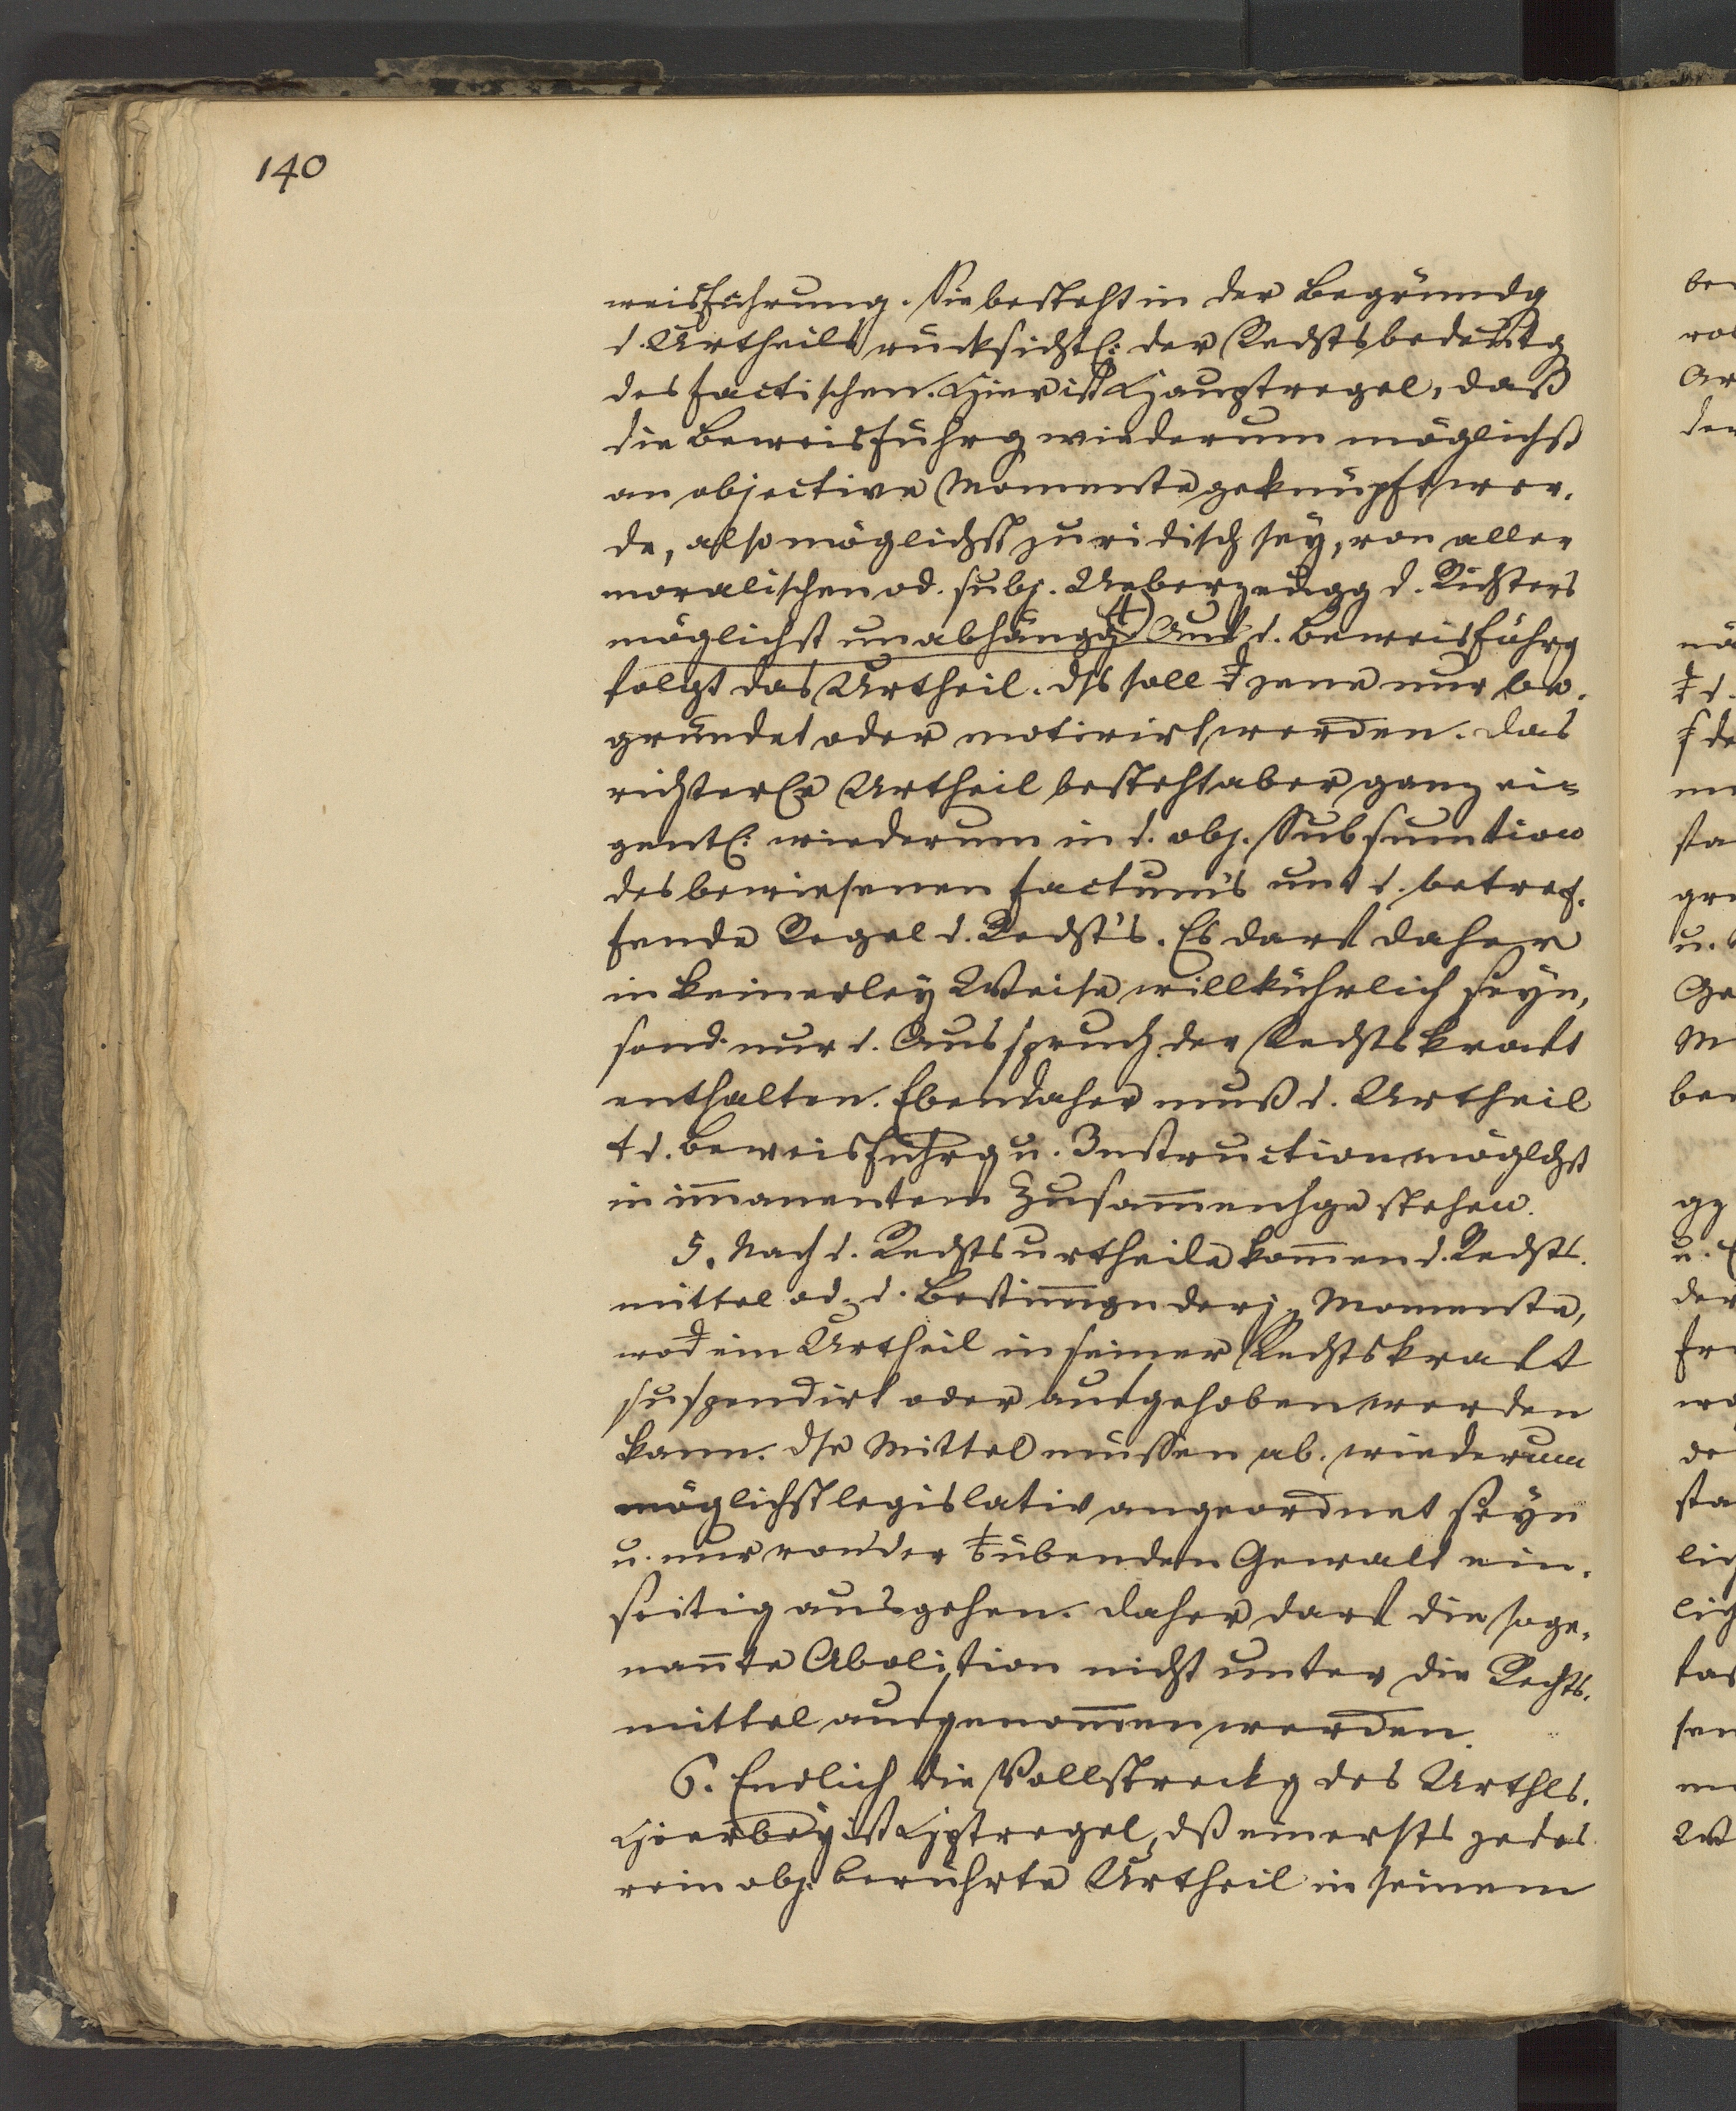 140
weisführung. Sie besteht in der Begründg
d. Urtheils rücksichtl: der Rechtsbedeutg
des factischen. Hier ist Hauptregel, daß
die Beweisführg wiederum möglichst
an objective Momente geknüpft wer-
de, also möglichst juridisch sey, von aller
moralischen od. subj. Ueberzeugg d. Richters
möglichst unabhängg 4) Auf d. Beweisführg
folgt das Urtheil. Dss soll jene nur be-
gründet oder motivirt werden. Das
richterle Urtheil besteht aber ganz ei=
gentl: wiederum in d. obj. Subsumtion
des bewiesenen factum's unt d. betref-
fende Regel d. Rechts's. Es darf daher
in keinerley Weise willkührlich seyn,
sond. nur d. Ausspruch der Rechtskraft
enthalten. Ebendaher muß d. Urtheil
d. Beweisführg u. Instruction möglchst
in im̄anentem Zusam̄enhge stehen.
5. Nach d. Rechtsurtheile kom̄en d. Rechts-
mittel od. d. Bestim̄gn derj. Momente,
wod ein Urtheil in seiner Rechtskraft
suspendirt oder aufgehoben werden
kann. Dse Mittel müssen ab. wiederum
möglichst legislativ angeordnet seyn
u. nur von der übenden Gewalt ein-
seitig ausgehen. Daher darf die soge-
nan̄te Abolition nicht unter die Rechts-
mittel aufgenom̄en werden.
6. Endlich die Vollstreckg des Urthls.
Hierbey ist Hptregel, dß einersts jedes
rein obj. berührte Urtheil in seinem